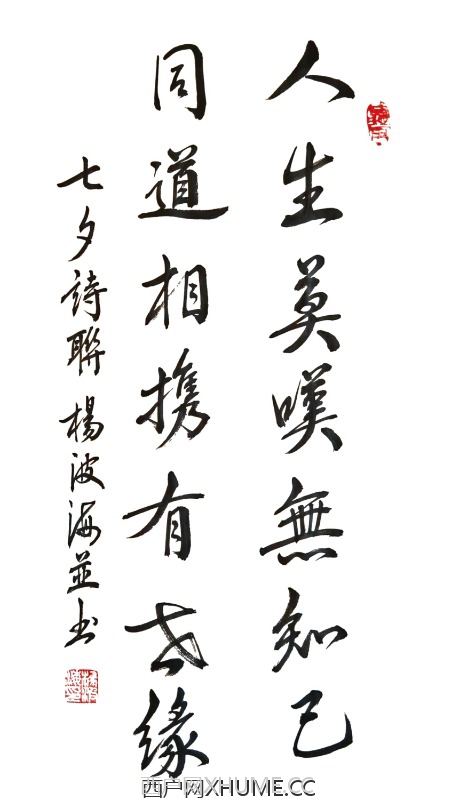 人生莫嘆無知己
同道相攜有世緣
七夕詩聯 楊波海並书
西户网XHUME.CC